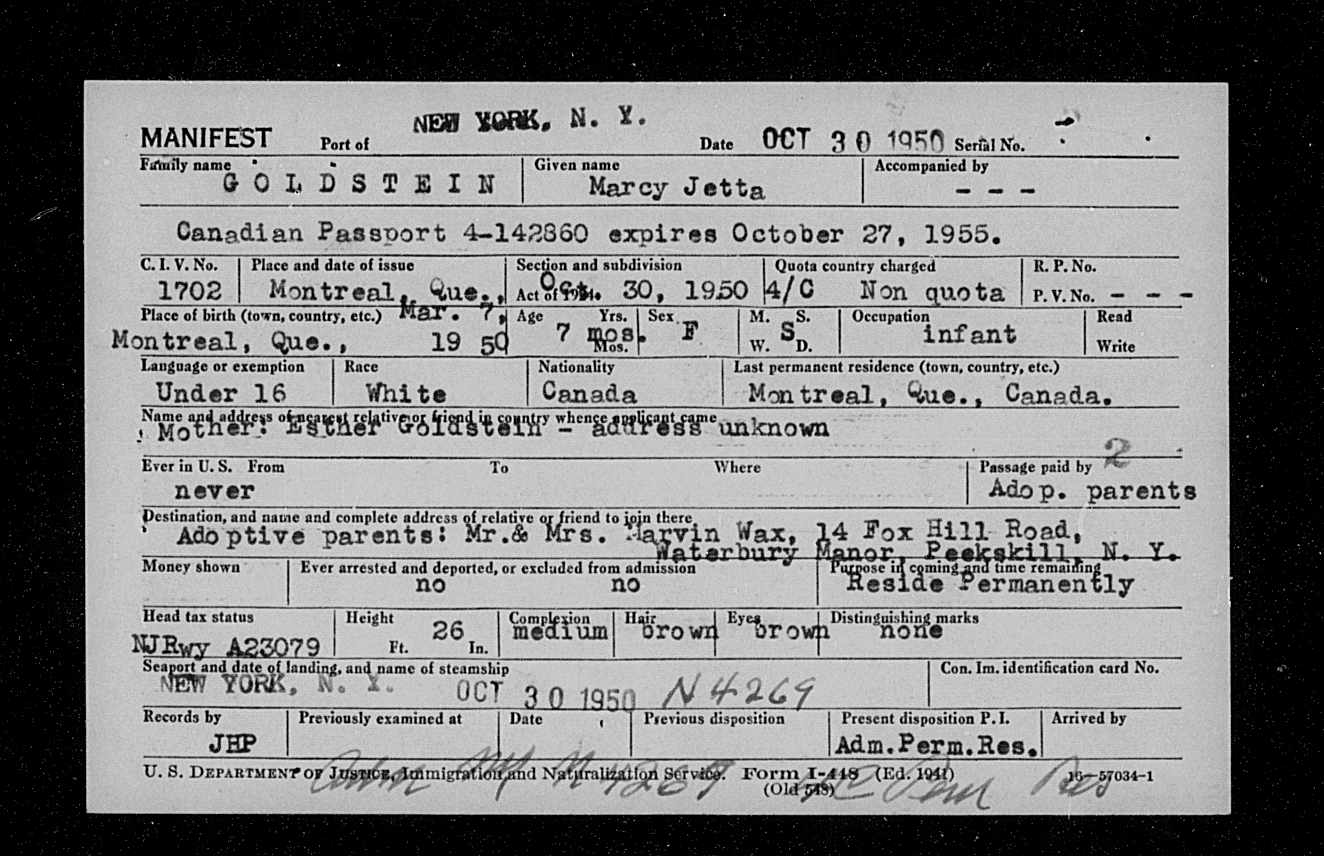 NEW YORK, N. Y.
MANIFEST Port of Date OCT 30 1950 Serial No.
Family name Given name Accompanied by
GOLDSTEIN Marcy Jetta - - -
Canadian Passport 4-142860 expires October 27, 1955.
C. I. V. No. Place and date of issue Section and subdivision Quota country charged R. P. No.
1702 Montreal, Que., Act of 1924. Oct. 30, 1950 4/C Non quota P. V. No. - - -
Place of birth (town, country, etc.) Mar. 7, Age Yrs. Sex M. S. Occupation Read
Montreal, Que., 19 50 7 mos. Mos. F S W. D. infant Write
Language or exemption Race Nationality Last permanent residence (town, country, etc.)
Under 16 White Canada Montreal, Que., Canada.
Name and address of nearest relative or friend in country whence applicant came
Mother: Esther Goldstein - address unknown
2
Ever in U. S. From To Where Passage paid by
never Adop. parents
Destination, and name and complete address of relative or friend to join there
Adoptive parents: Mr.& Mrs. Marvin Wax, 14 Fox Hill Road,
Waterbury Manor, Peekskill, N. Y.
Money shown Ever arrested and deported, or excluded from admission Purpose in coming and time remaining
no no Reside Permanently
Head tax status Height Complexion Hair Eyes Distinguishing marks
NJRwy A23079 Ft. 26 In. medium brown brown none
Seaport and date of landing, and name of steamship Con. Im. identification card No.
NEW YORK, N. Y. OCT 30 1950 N4269
Records by Previously examined at Date Previous disposition Present disposition P. I. Arrived by
JHP Adm.Perm.Res.
U. S. DEPARTMENT OF JUSTICE, Immigration and Naturalization Service. Form I-448 (Ed. 1941) 16—57034-1
(Old 548)
N4269 Perm Res